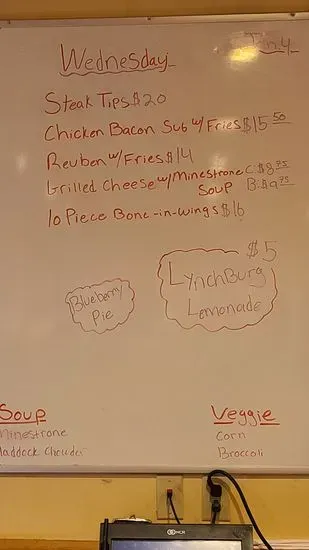 Wednesday
Steak Tips $20
Chicken Bacon Sub w/ Fries $15 50
Reuben w/ Fries $14
Grilled Cheese w/ Minestrone C $8 75
Soup B $9 75
10 Piece Bone-in-Wings $16
$5
LynchBurg
Lemonade
Blueberry
Pie
Soup
Minestrone
Haddock Chowder
Veggie
Corn
Broccoli
NCR